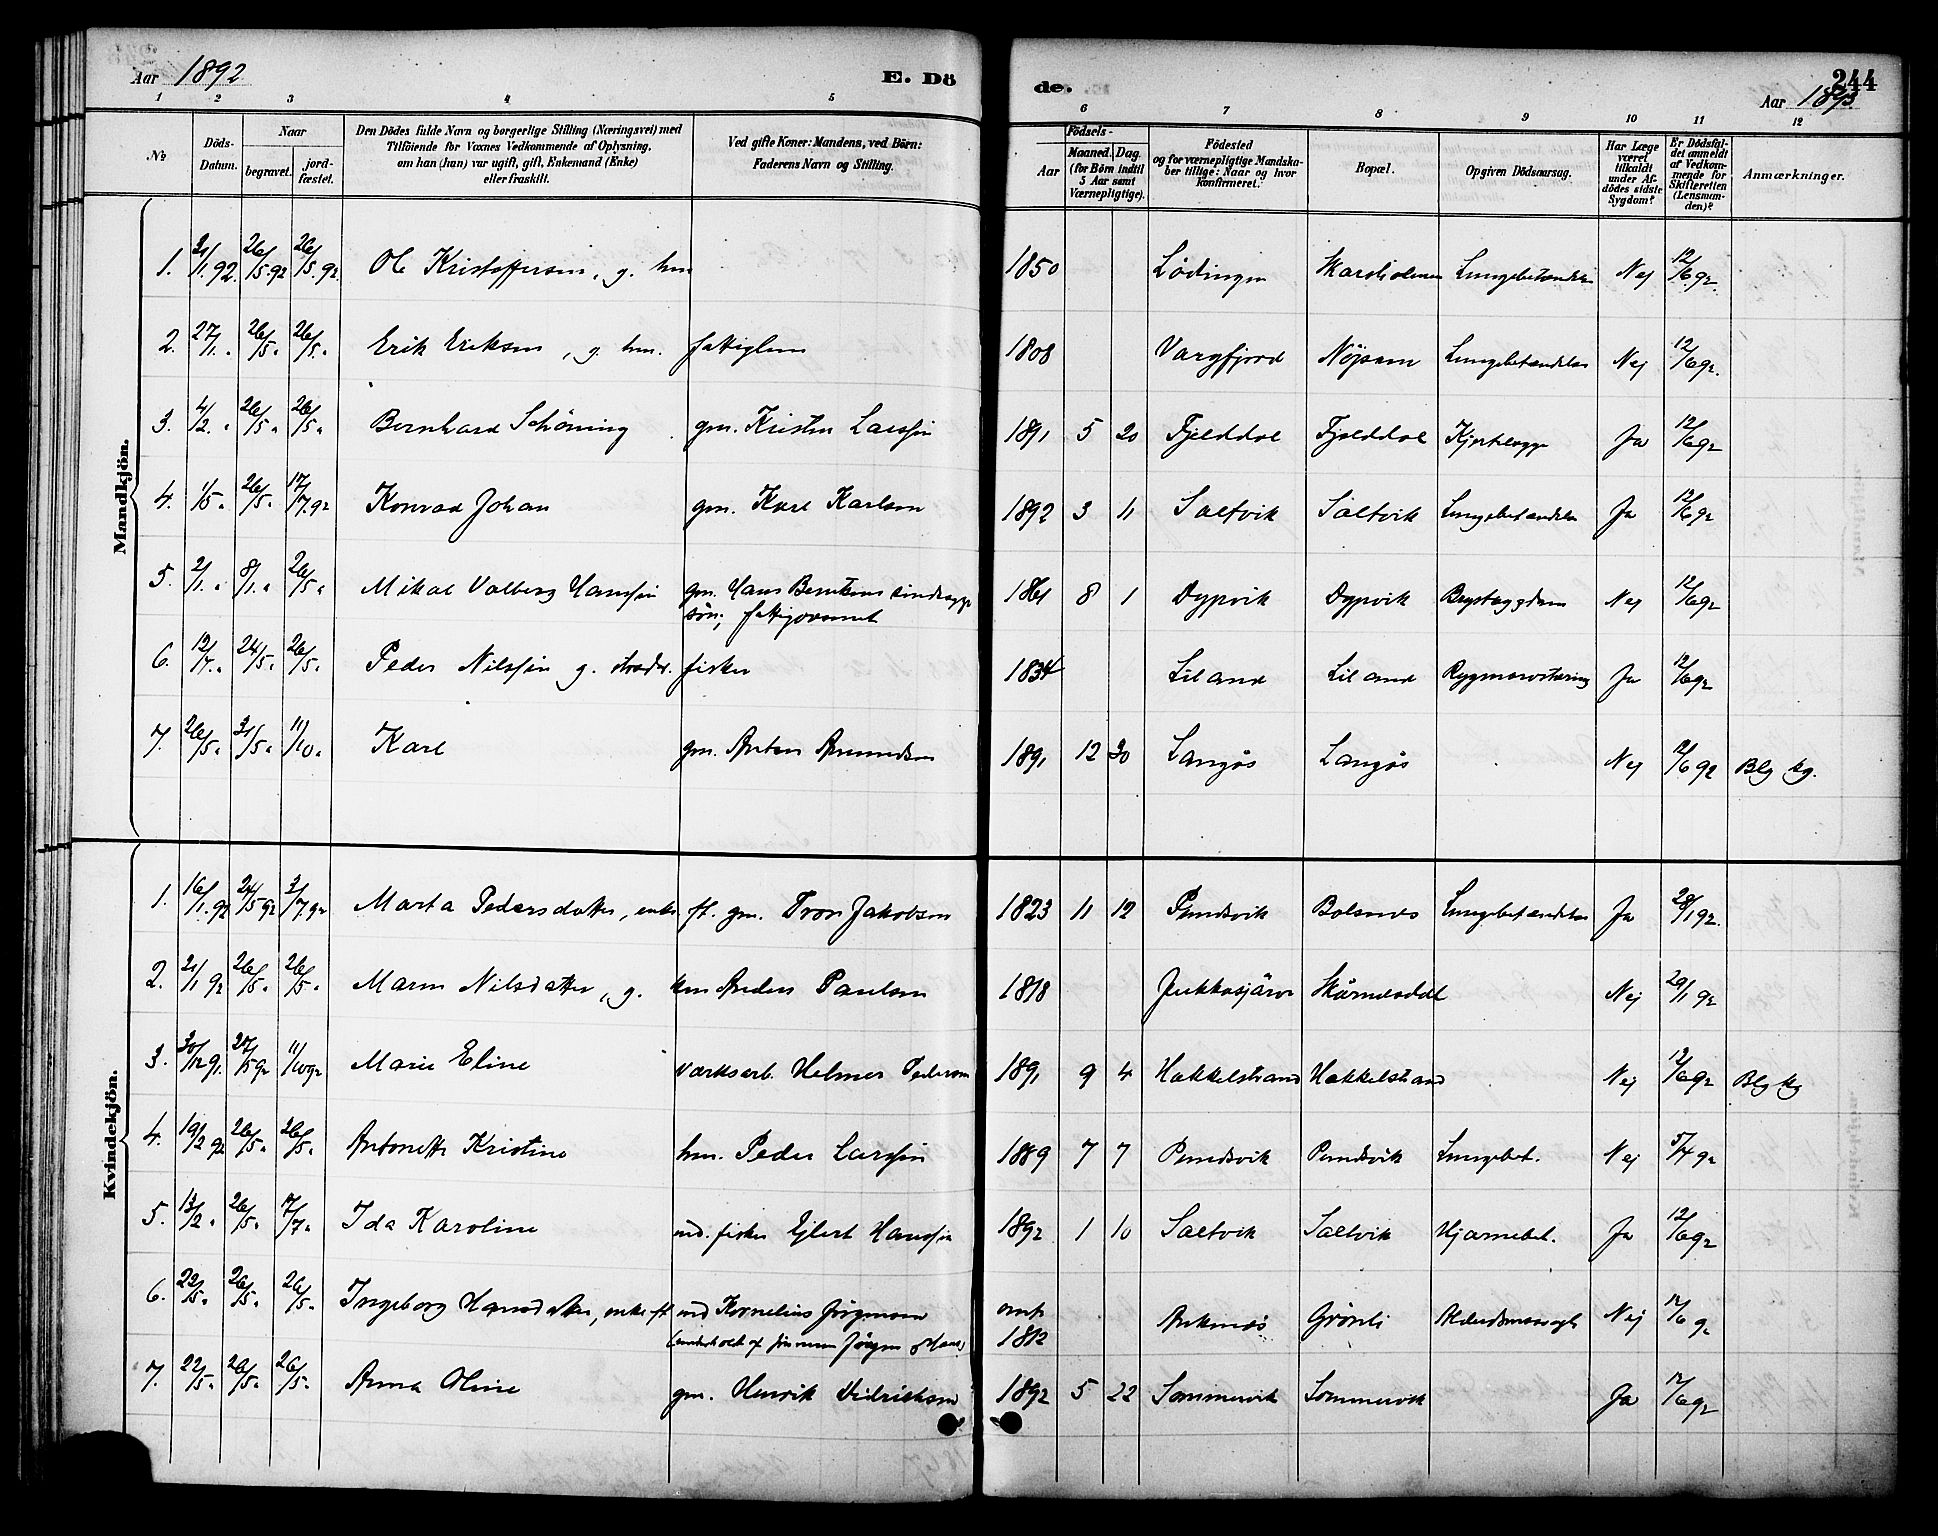 Aar 1892
E. Dö
de.
244
Aar 1893
1 2 3 4 5 6 7 8 9 10 11 12
No
Döds-Datum.
Naar
begravet.
jord-fæstet.
Den Dödes fulde Navn og borgerlige Stilling (Næringsvei) med
Tilföiende for Voxnes Vedkommende af Oplysning,
om han (hun) var ugift, gift, Enkemand (Enke)
eller fraskilt.
Ved gifte Koner: Mandens, ved Börn:
Faderens Navn og Stilling.
Födsels-
Aar
Maaned. Dag.
(for Börn indtil
5 Aar samt
Værnepligtige).
Födested
og for værnepligtige Mandska-
ber tillige: Naar og hvor
konfirmeret.
Bopæl.
Opgiven Dödsaarsag.
Har Læge
været
tilkaldt
under Af-
dödes sidste
Sygdom?
Er Dödsfal-
det anmeldt
af Vedkom-
mende for
Skifteretten
(Lensman-
den)?
Anmærkninger.
Mandkjön.
1. 21/1.92. 26/5.92 26/5.92. Ole Kristoffersen, g. hm 1850 Lödingen Lungebetændelse Nej 12/6 92.
2. 27/1. " 26/5. " 26/5. " Erik Eriksen, g. hm. fattiglem 1808 Vargfjord Nöjsom Lungebetændelse Nej 12/6 92.
3. 4/2. " 26/5 " 26/5 " Bernhard Schöning gm. Kristen Larssen 1891 5 20 Fjelddal Fjelddal Ja 12/6 92
4. 1/5 " 26/5. " 17/7.92 Konrad Johan gm. Karl Karlsen 1892 3 11 Saltvik Saltvik Lungebetændelse Ja 12/6 92
5. 2/1. " 8/1. " 26/5 " Mikal Valberg Hanssen gm. Hans Berntsens
sön; 1861 8 1 Dypvik Dypvik Brystsygdom Nej 12/6 92
6. 12/4. " 24/5. " 26/5. " Peder Nilssen g. fisker 1834 Liland Liland Rygmarvstæring Ja 12/6 92
7. 26/5. " 31/5. " 11/10. " Karl gm. Anton Amundsen 1891 12 30 Langås Langås Nej 12/6 92 Blg kg.
Kvindekjön.
1. 16/1.92 24/5 92 3/7 92 Marta Pedersdatter, enke ft. gm. Tron Jakobsen 1823 11 12 Pundsvik Balsnes Lungebetændelse Ja 28/1 92.
2. 21/1 92 26/5. " 26/5. " Maren Nilsdatter, g. hm Anders Paulsen 1818 Jukkasjärvi Skårnesdal Nej 29/1 92
3. 30/12 91. 27/5 92 11/10 92 Marie Eline Værksarb. Helmer Pedersen 1891 9 4 Hakkelstrand Hakkelstrand Nej 12/6 92 Blg kg
4. 19/2 92 26/5. " 26/5. " Antonette Kristine hm. Peder Larssen 1889 7 7 Pundsvik Pundsvik Lungebet. Nej 5/4 92
5. 13/2 " 26/5. " 17/7 " Ida Karoline ind. fisker Ejlert Hanssen 1892 1 10 Saltvik Saltvik Hjærnebet. Ja 12/6 92
6. 22/5. " 26/5. " 26/5. " Ingeborg Hansdatter, enke ft. ind Kornelius Jörgensen
omtr 1812 Ankenes Grönli Nej 12/6 92
7. 22/5. " 26/5. " 26/5. " Anna Oline gm. Henrik Didriksen 1892 5 22 Sommervik Sommervik Ja 12/6 92